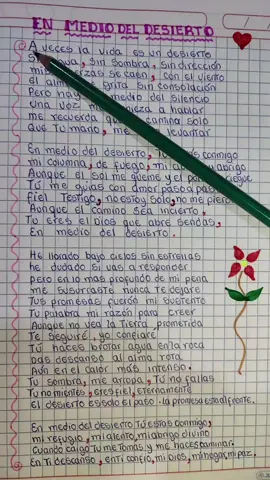 EN MEDIO DEL DESIERTO
A veces la vida es un desierto
sin sombra, sin dirección
se caen, con el viento
el alma grita sin consolación
Pero medio del silencio
una voz empieza a hablar
me recuerda que camino solo
que Tú mano, me levantar
En medio del desierto, Tú conmigo
mi columna, de fuego, mi abrigo
Aunque el sol me queme y el
Tú me guías con amor paso a paso
fiel Testigo, no estoy solo, no me pierdo
Aunque el camino sea incierto,
Tú eres el Dios que abre sendas,
En medio del desierto.
He llorado bajo cielos sin estrellas
he dudado si vas a responder
pero en lo mas profundo de mi pena
me susurraste nunca Te dejaré
Tus promesas fueron mi sustento
Tu palabra mi razón para creer
Aunque no vea la Tierra prometida
Te seguiré, yo confiaré
Tú haces brotar agua en la roca
Das descanso al alma rota
Aún en el calor más intenso.
Tu sombra, me arropa, Tú no fallas
Tú no mientes, eres fiel, eternamente
El desierto es solo el paso - la promesa está al frente.
En medio del desierto Tú estás conmigo,
mi refugio, mi aliento, mi abrigo divino
Cuando caigo Tú me Tomas y me haces caminar.
En Ti descanso, en ti confío, mi Dios, mi hogar, mi paz.